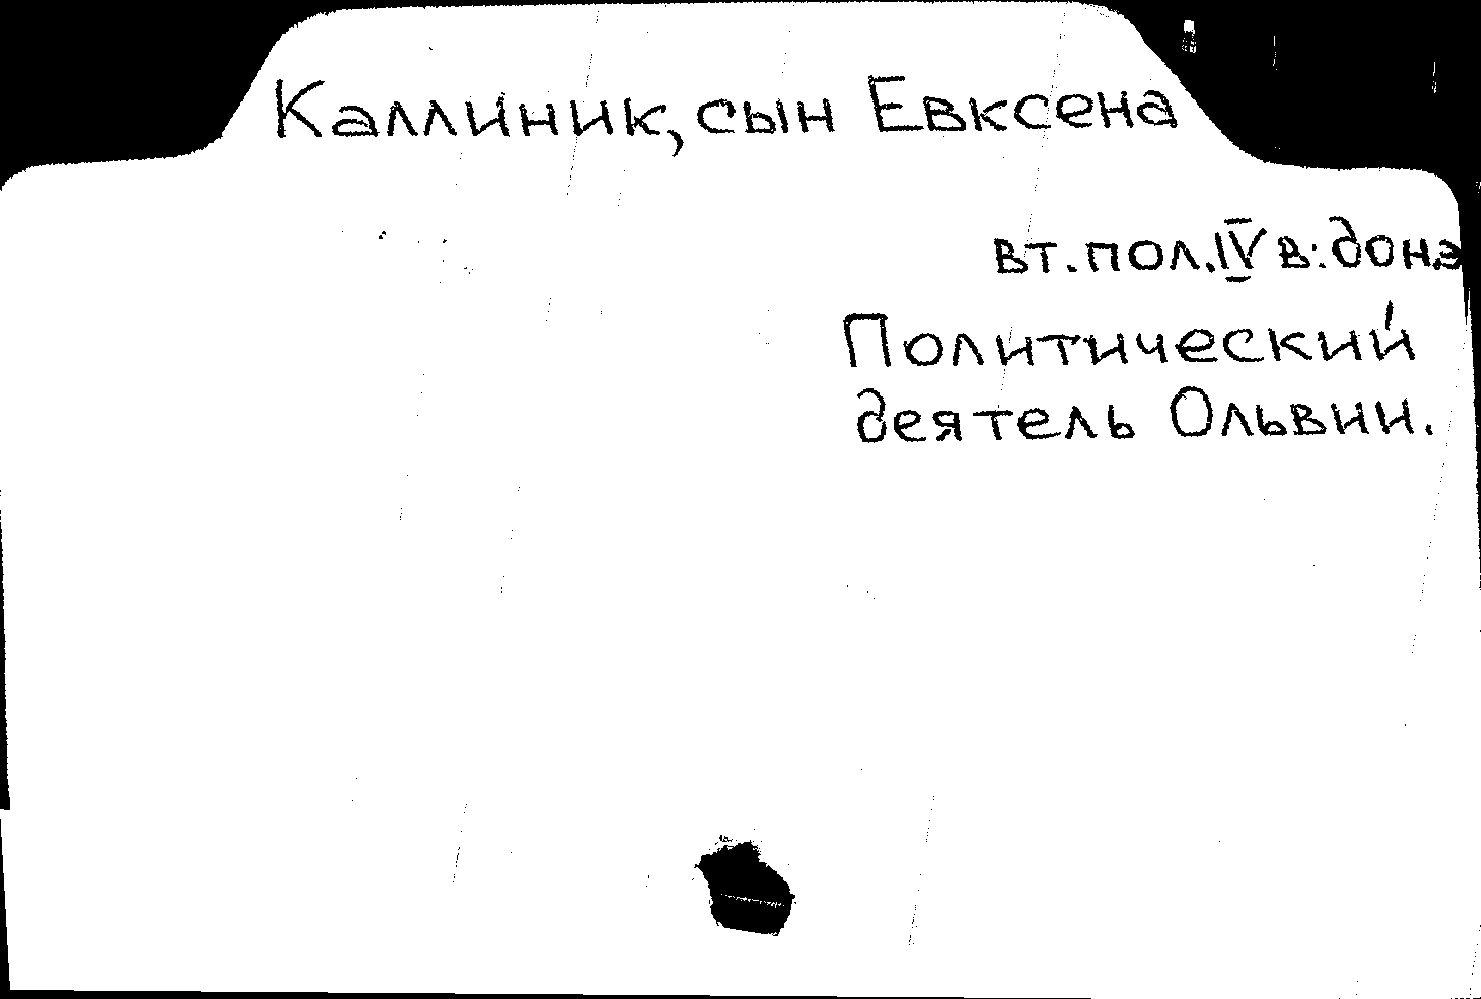 Каллиник, сын Евксена
вт. пол. IV в. до н.э
Политический
деятель Ольвии.